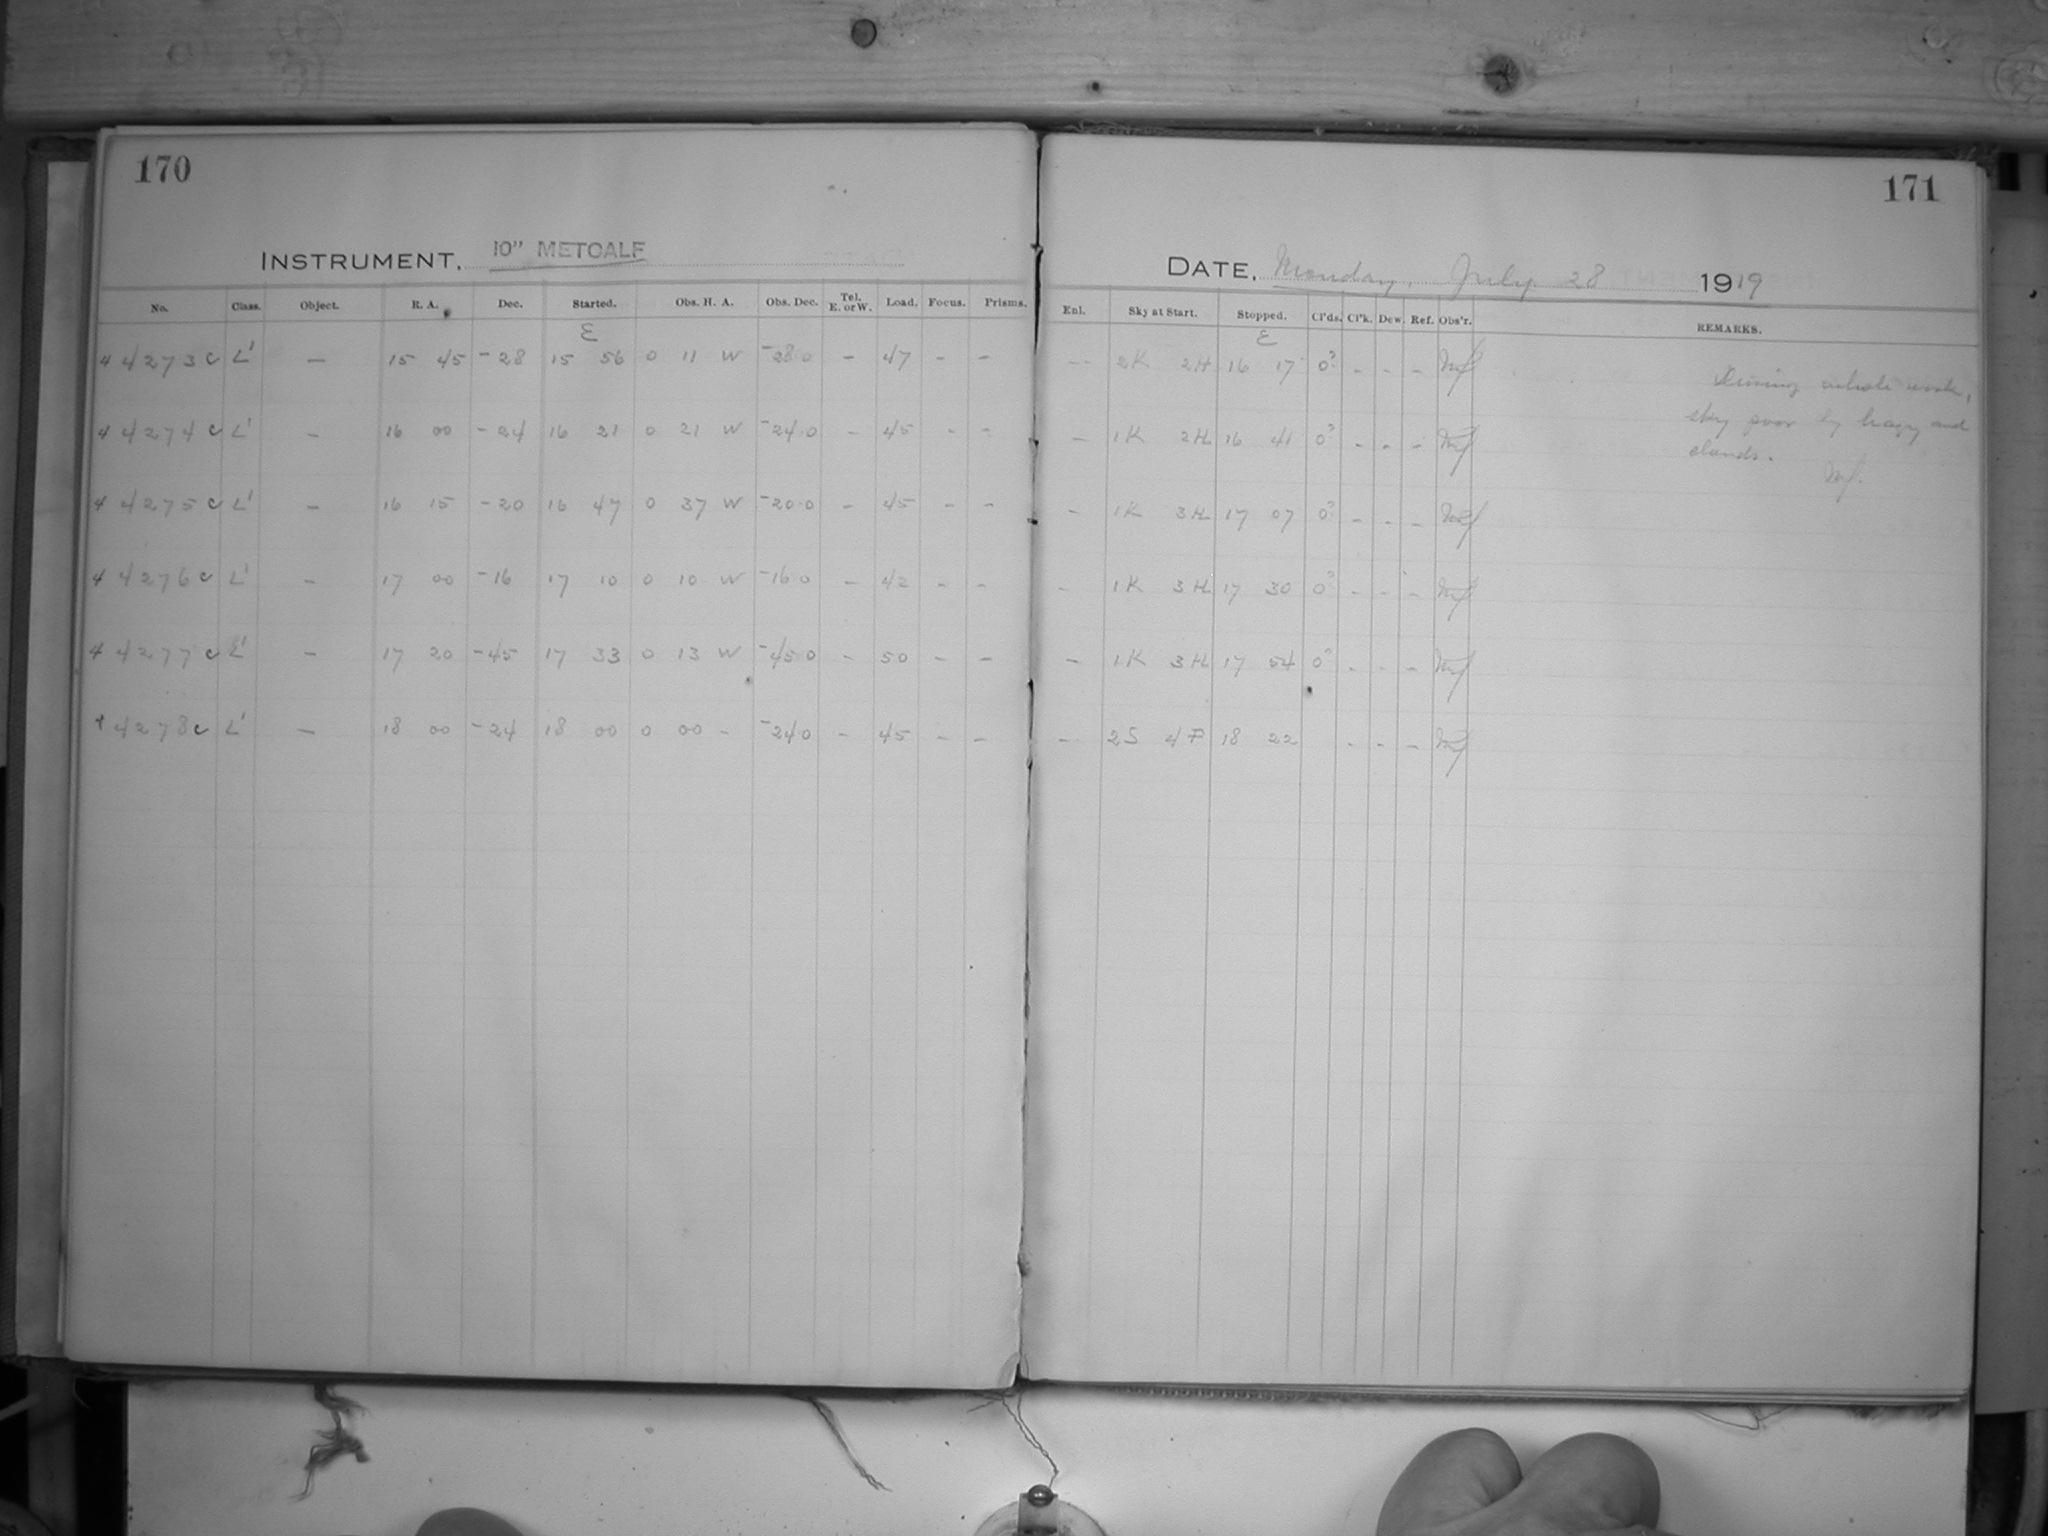 170
INSTRUMENT. 10" METCALF
No. Class. Object. R. A. Dec. Started. Obs. H. A. Obs. Dec. Tel. E. or W. Load. Focus. Prisms.
E
4273 C L' — 15 45 -28 15 56 0 11 W -28 0 - 47 - -
4274 C L' — 16 00 -24 16 21 0 21 W -24 0 - 45 - -
4275 C L' — 16 15 -20 16 47 0 37 W -20 0 - 45 - -
4276 C L' — 17 00 -16 17 10 0 10 W -16 0 - 42 - -
4277 C L' — 17 20 -45 17 33 0 13 W -45 0 - 50 - -
4278 C L' — 18 00 -24 18 00 0 00 - -24 0 - 45 - -
171
DATE. Monday, July 28 1919
Enl. Sky at Start. Stopped. Cl'ds. Cl'k. Dew. Ref. Obs'r. REMARKS.
E
- 2K 2H 16 17 0? - - -
- 1K 2H 16 41 0? - - -
- 1K 3H 17 07 0? - - -
- 1K 3H 17 30 0? - - -
- 1K 3H 17 54 0? - - -
- 2S 4P 18 22 - - -
During whole work,
sky poor by hazy and
clouds.